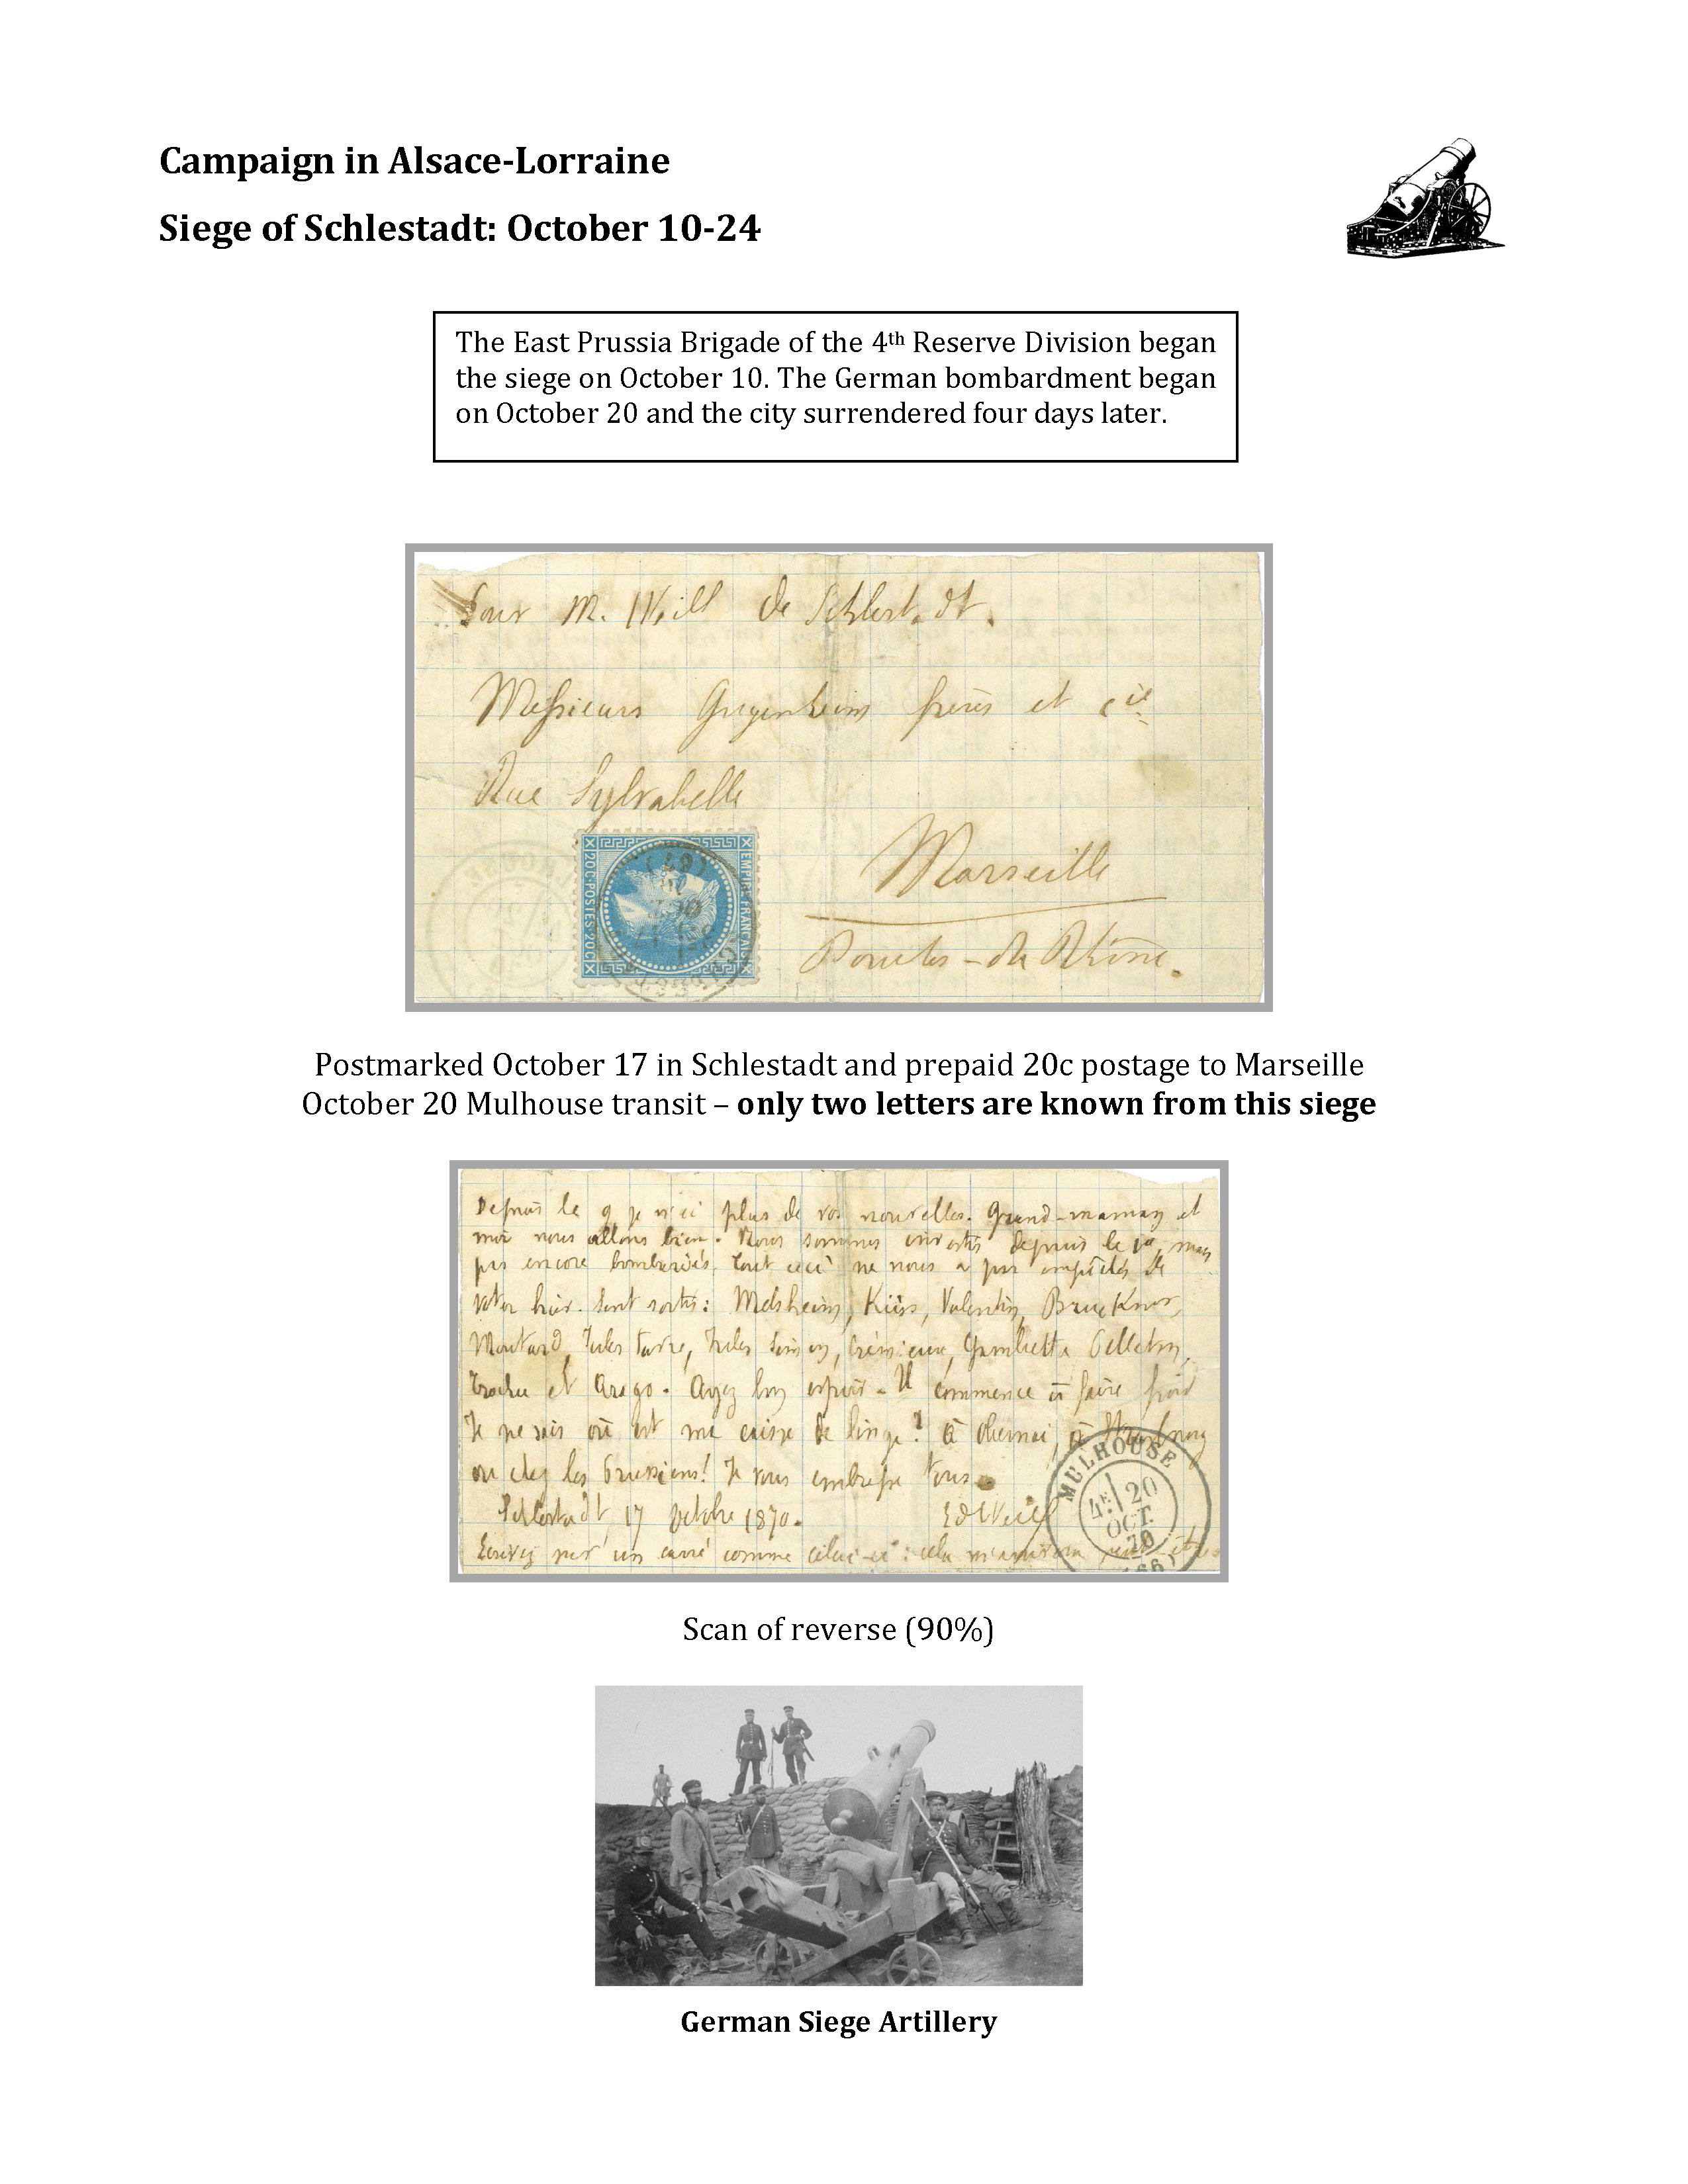 Campaign in Alsace-Lorraine
Siege of Schlestadt: October 10-24
The East Prussia Brigade of the 4th Reserve Division began
the siege on October 10. The German bombardment began
on October 20 and the city surrendered four days later.
Pour M. Weill de Schlestadt.
Messieurs Gugenheim frères et Cie
Rue Sylvabelle
EMPIRE FRANCAIS
20 C POSTES 20 C
Marseille
Bouches-du Rhône.
Postmarked October 17 in Schlestadt and prepaid 20c postage to Marseille
October 20 Mulhouse transit – only two letters are known from this siege
Depuis le 9 je n'ai plus de vos nouvelles. Grand-maman et
moi nous allons bien. Nous sommes investis depuis le mais
pas encore bombardés. Tout ceci ne nous a pas empêchés de
voter hier. Sont sortis: Melsheim, Küss, Valentin, Bruckner,
Moutard, Jules Favre, Jules Simon, Crémieux, Gambetta Pelletan,
Trochu et Arago. Ayez bon espoir - Il commence à faire froid
Je ne sais où est ma caisse de linge? à Obernai, à Strasbourg
ou chez les Prussiens! Je vous embrasse tous
Schlestadt, 17 octobre 1870. Ed Weill
Ecrivez sur un carré comme celui-ci: cela m'arrivera peut-être
MULHOUSE
4E 20
OCT.
70
(66)
Scan of reverse (90%)
German Siege Artillery